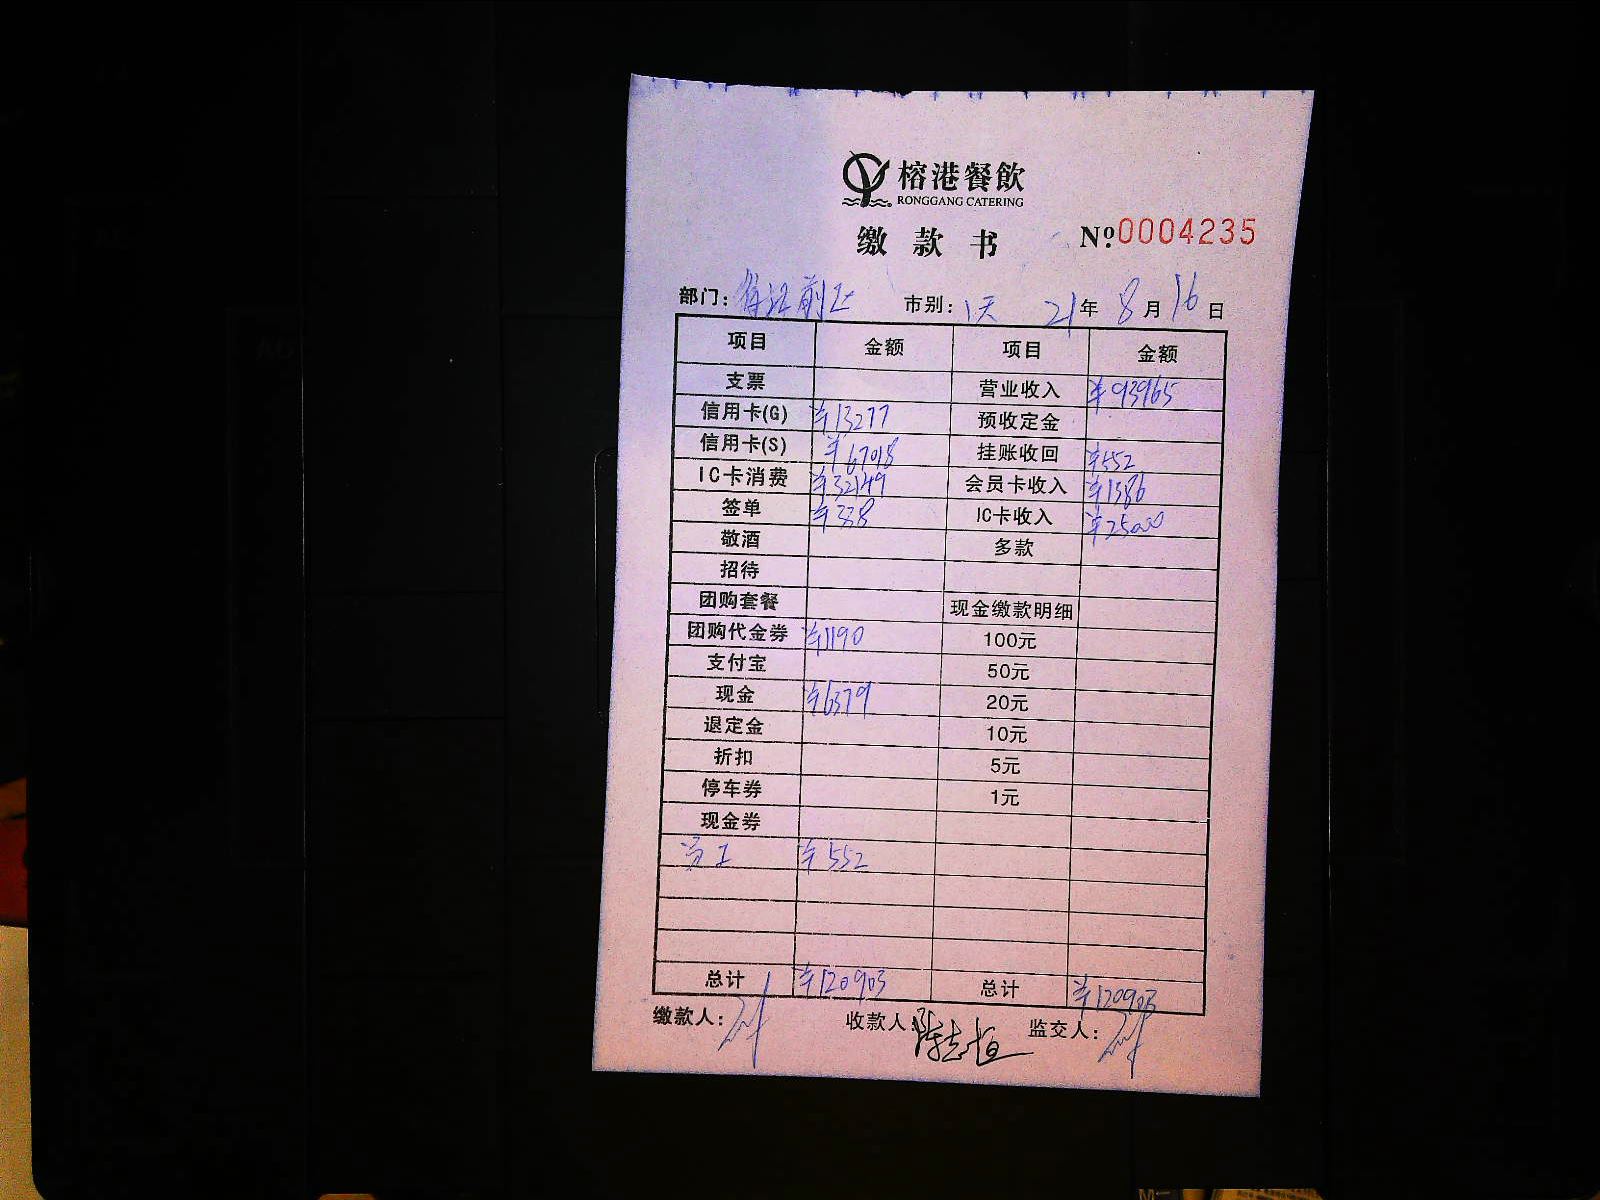 榕港餐飲
RONGGANG CATERING
缴款书 №0004235
部门： 市别：1天 21年8月16日
项目 金额 项目 金额
支票 营业收入 ¥93965
信用卡(G) ¥13277 预收定金
信用卡(S) ¥67018 挂账收回 ¥552
IC卡消费 ¥32149 会员卡收入 ¥1386
签单 ¥338 IC卡收入 ¥25000
敬酒 多款
招待
团购套餐 现金缴款明细
团购代金券 ¥1190 100元
支付宝 50元
现金 ¥6379 20元
退定金 10元
折扣 5元
停车券 1元
现金券
员工 ¥552
总计 ¥120903 总计 ¥120903
缴款人： 收款人：陈志恒 监交人：